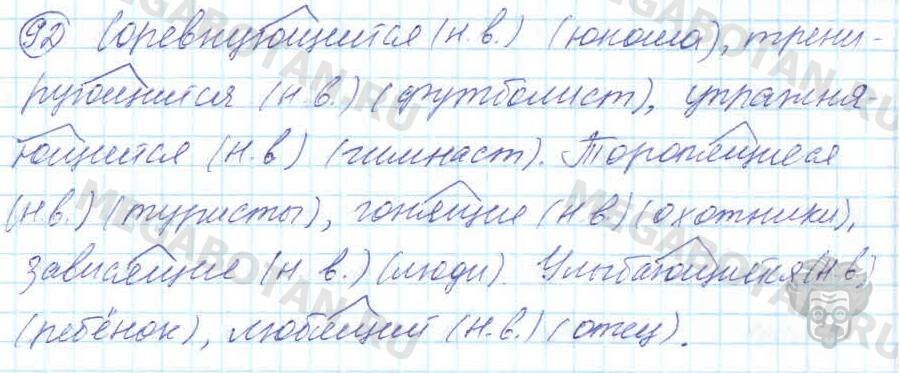 92 Соревнующийся (н.в.) (юноша), трени-
рующийся (н.в.) (футболист), упражня-
ющийся (н.в) (гимнаст). Торопящиеся
(н.в.) (туристы), гонящие (н в) (охотники),
зависящие (н. в.) (люди). Улыбающийся (н.в.)
(ребёнок), любящий (н.в.) (отец).
MEGABOTAN.RU